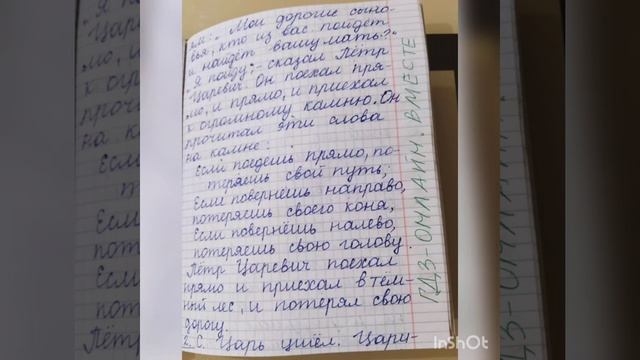 ям: „Мои дорогие сыно-
вья, кто из вас пойдёт
и найдёт вашу мать?"
"Я пойду" - сказал Пётр
Царевич. Он поехал пря-
мо, и прямо, и приехал
к огромному камню. Он
прочитал эти слова
на камне:
Если поедешь прямо, по-
теряешь свой путь,
Если повернёшь направо,
потеряешь своего коня,
Если повернёшь налево,
потеряешь свою голову.
Пётр Царевич поехал
прямо и приехал в тём-
ный лес, и потерял свою
дорогу.
2. С. Царь ушёл. Цари-
ГДЗ-ОНЛАЙН. ВМЕСТЕ
InShOt